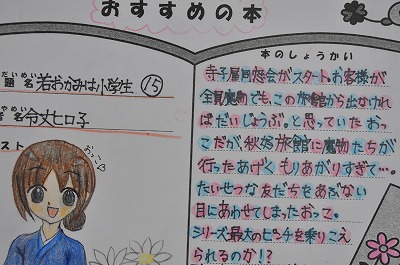 おすすめの本
だいめい
題名 若おかみは小学生 ⑮
やめい
者名 令丈ヒロ子
スト
おっこ♡
本のしょうかい
寺子屋同窓会がスタート。お客様が
全員魔物でも、この旅館から出なけれ
ばだいじょうぶ。と思っていたおっ
こだが秋好旅館に魔物たちが
行ったあげくもりあがりすぎて…。
たいせつな友だちをあぶない
目にあわせてしまったおっこ。
シリーズ最大のピンチを乗りこえ
られるのか!?